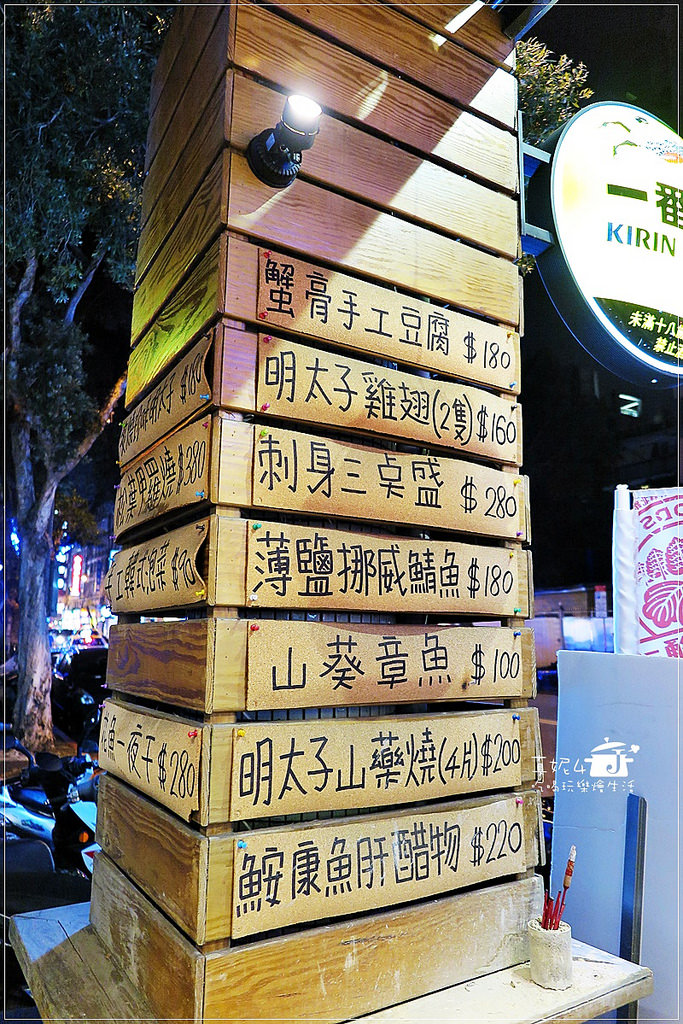 蟹膏手工豆腐 $180
明太子雞翅(2隻)$160
刺身三点盛 $280
薄鹽挪威鯖魚 $180
山葵章魚 $100
明太子山藥燒(4片)$200
鮟康魚肝醋物 $220
$180
甲羅燒 $380
工韓式泡菜 $70
魚一夜干 $280
一番
KIRIN
未滿十八
禁止